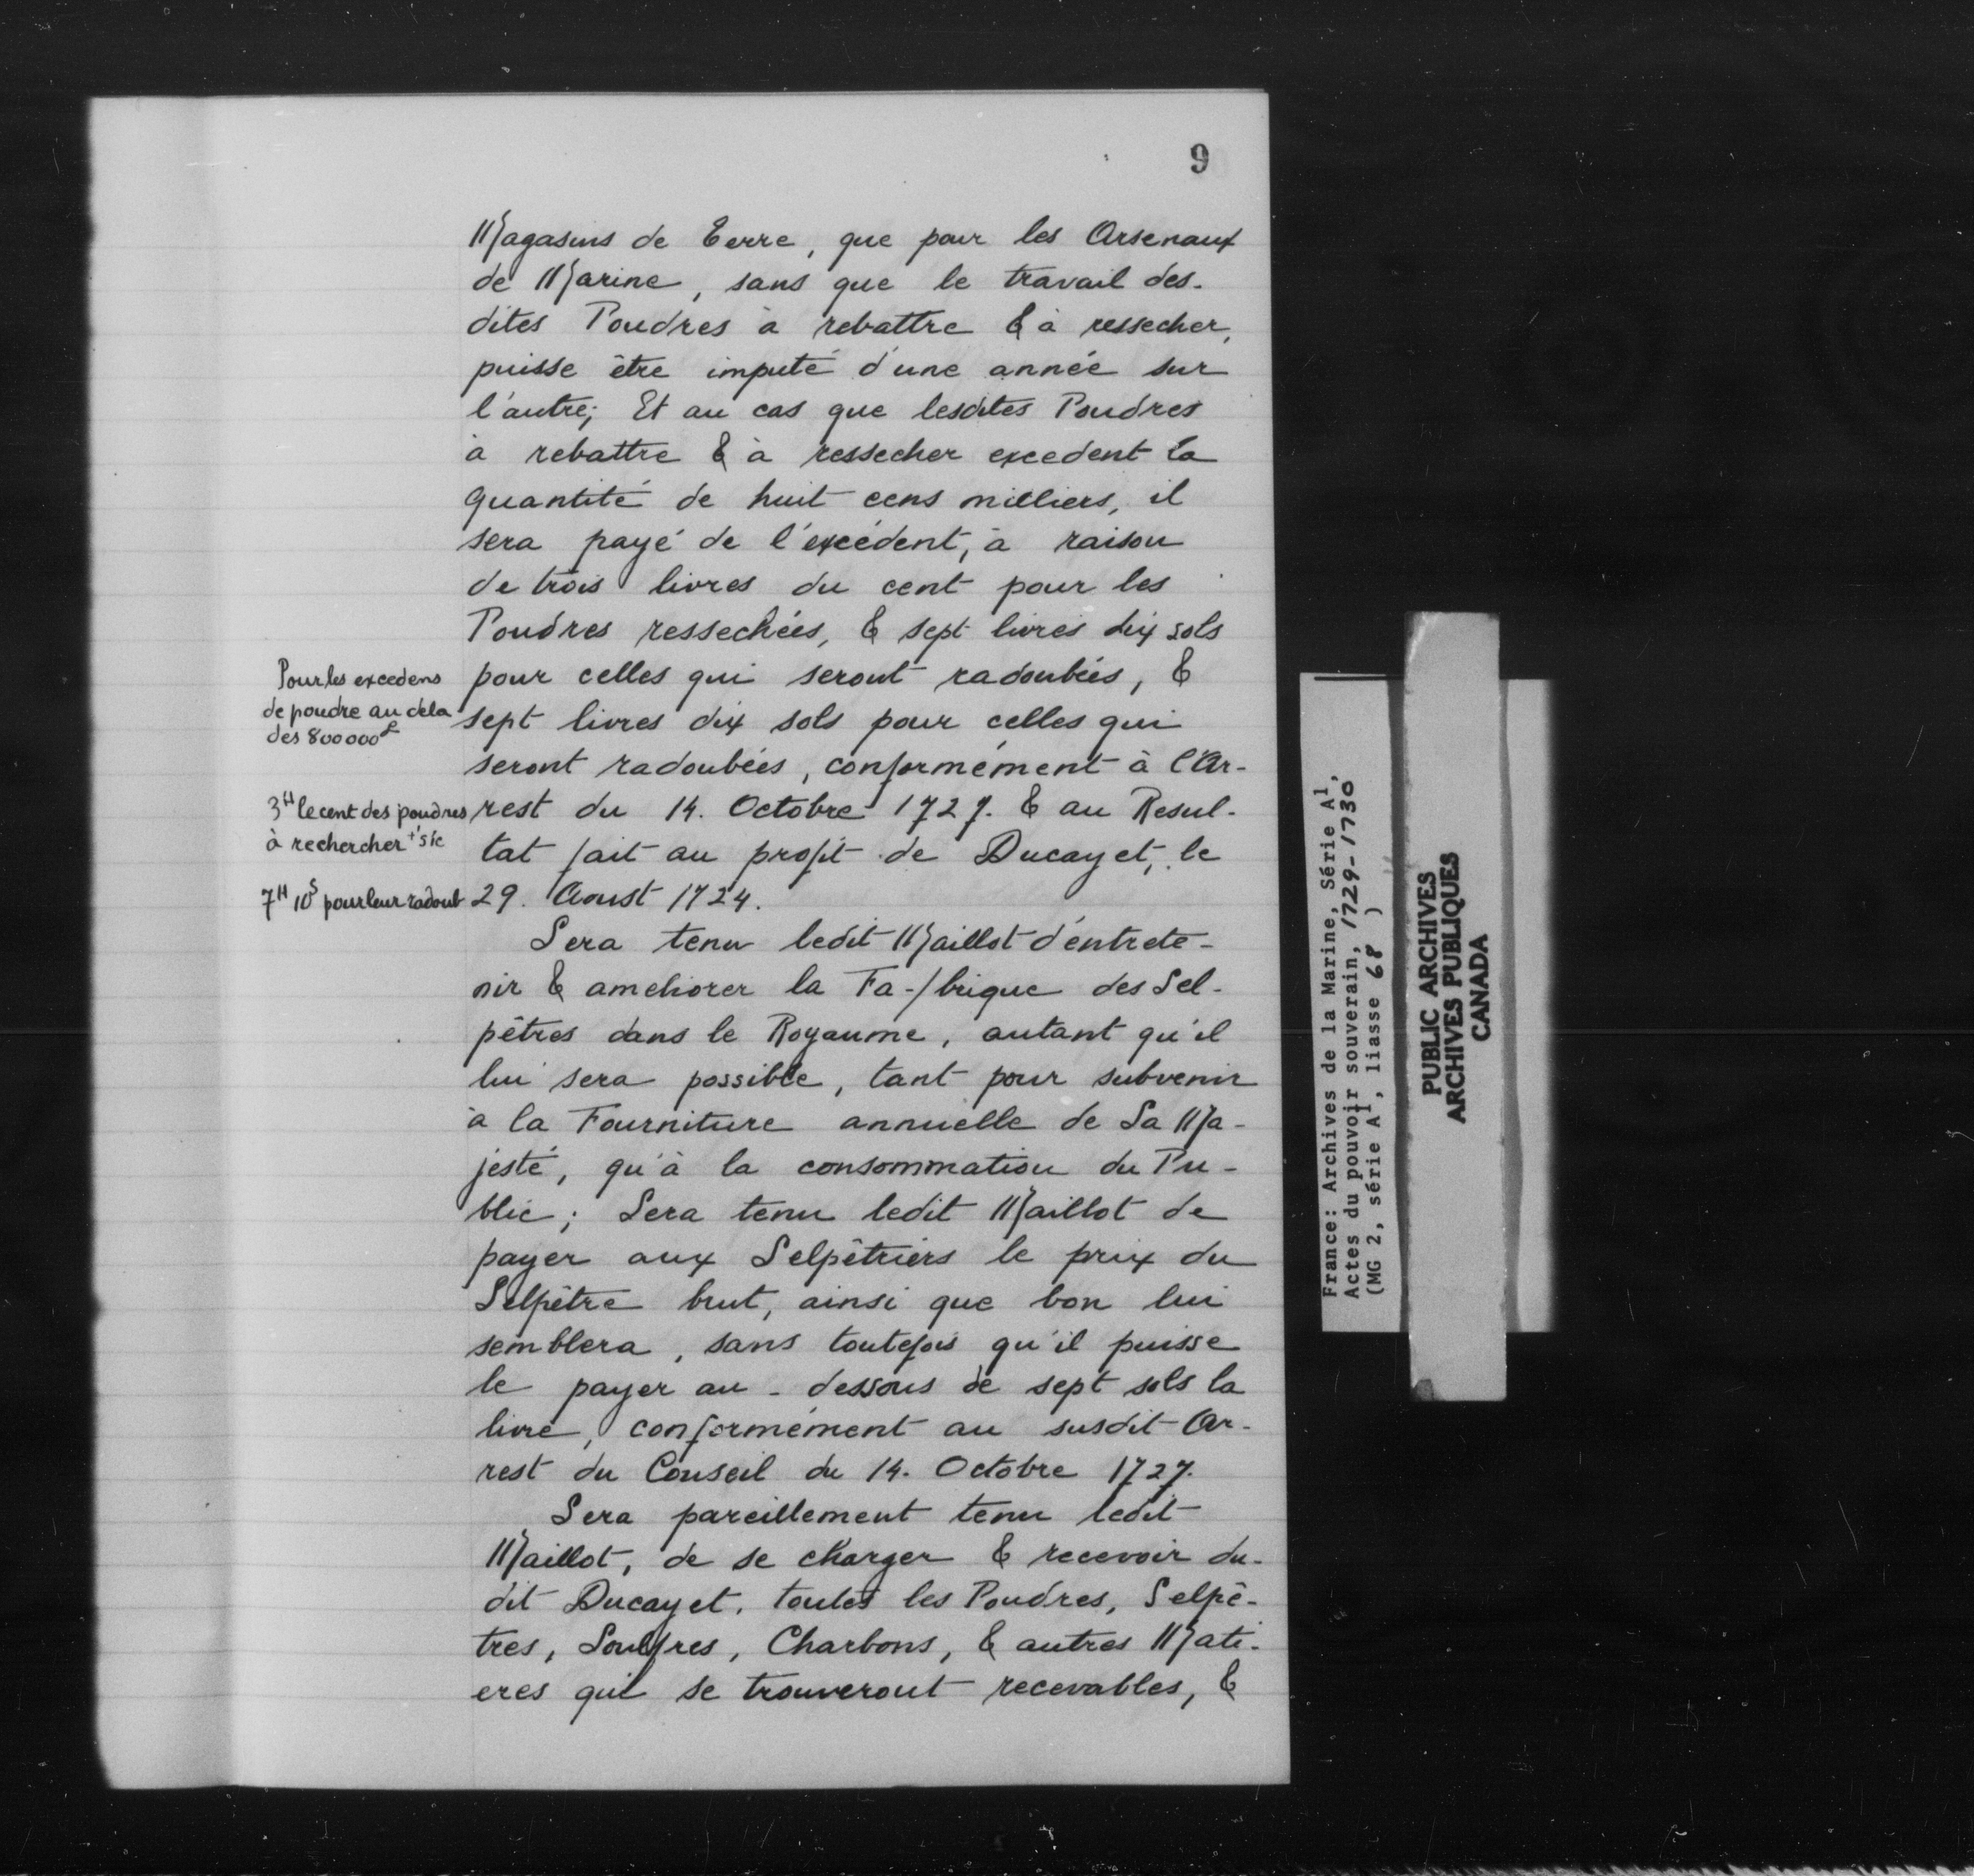 9
Magasins de Terre, que pour les Arsenaux
de Marine, sans que le travail des-
dites Poudres à rebattre & à ressecher,
puisse être imputé d'une année sur
l'autre; Et au cas que lesdites Poudres
à rebattre & à ressecher excedent la
quantité de huit cens milliers, il
sera payé de l'excédent, à raison
de trois livres du cent pour les
Poudres ressechées, & sept livres dix sols
pour celles qui seront radoubées, &
sept livres dix sols pour celles qui
seront radoubées, conformément à l'Ar-
rest du 14. Octobre 1727. & au Resul-
tat fait au profit de Ducayet, le
29. Aoust 1724.
Pour les excedens
de poudre au dela
des 800000 £
3 # le cent des poudres
à rechercher + sic
7 # 10 s pour leur radoub
Sera tenu ledit Maillot d'entrete-
nir & ameliorer la Fa-/brique des Sel-
pêtres dans le Royaume, autant qu'il
lui sera possible, tant pour subvenir
à la Fourniture annuelle de Sa Ma-
jesté, qu'à la consommation du Pu-
blic; Sera tenu ledit Maillot de
payer aux Selpêtriers le prix du
Selpêtre brut, ainsi que bon lui
semblera, sans toutefois qu'il puisse
le payer au-dessous de sept sols la
livre, conformément au susdit Ar-
rest du Conseil du 14. Octobre 1727.
Sera pareillement tenu ledit
Maillot, de se charger & recevoir du-
dit Ducayet, toutes les Poudres, Selpê-
tres, Soulfres, Charbons, & autres Mati-
eres qui se trouveront recevables, &
France: Archives de la Marine, Série A1,
Actes du pouvoir souverain, 1729-1730
(MG 2, série A1, liasse 68 )
PUBLIC ARCHIVES
ARCHIVES PUBLIQUES
CANADA